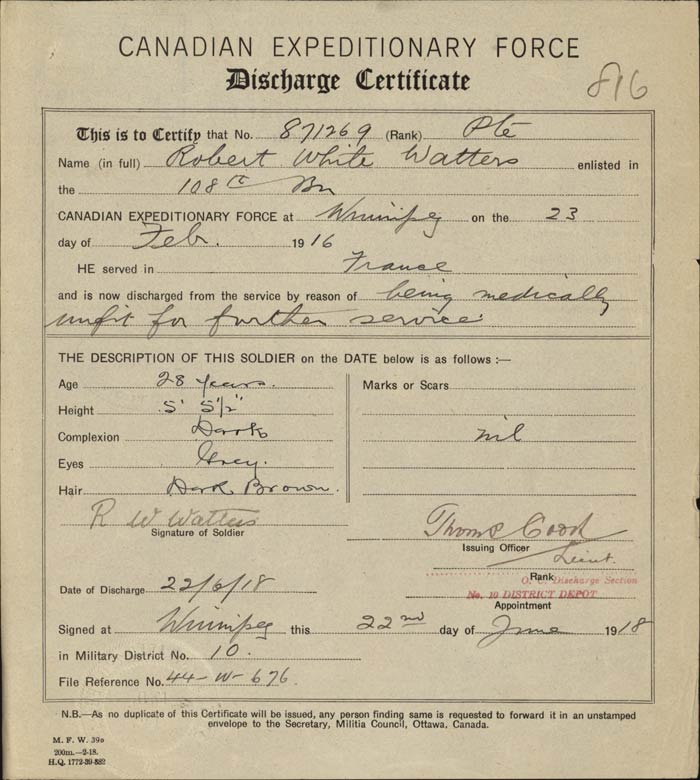 CANADIAN EXPEDITIONARY FORCE
Discharge Certificate
816
This is to Certify that No. 871269 (Rank) Pte
Name (in full) Robert White Watters enlisted in
the 108th Bn
CANADIAN EXPEDITIONARY FORCE at Winnipeg on the 23
day of Feb. 1916
HE served in France
and is now discharged from the service by reason of being medically
unfit for further service
THE DESCRIPTION OF THIS SOLDIER on the DATE below is as follows :—
Age 28 years.
Height 5' 5½"
Complexion Dark
Eyes Grey.
Hair Dark Brown.
Marks or Scars
nil
R W Watters
Signature of Soldier
Thoms
Issuing Officer
Lieut.
Rank
O. C. Discharge Section
No. 10 DISTRICT DEPOT
Appointment
Date of Discharge 22/6/18
Signed at Winnipeg this 22nd day of June 1918
in Military District No. 10.
File Reference No. 44-W-676.
N.B.—As no duplicate of this Certificate will be issued, any person finding same is requested to forward it in an unstamped
envelope to the Secretary, Militia Council, Ottawa, Canada.
M. F. W. 39a
200m.—2-18.
H.Q. 1772-39-882